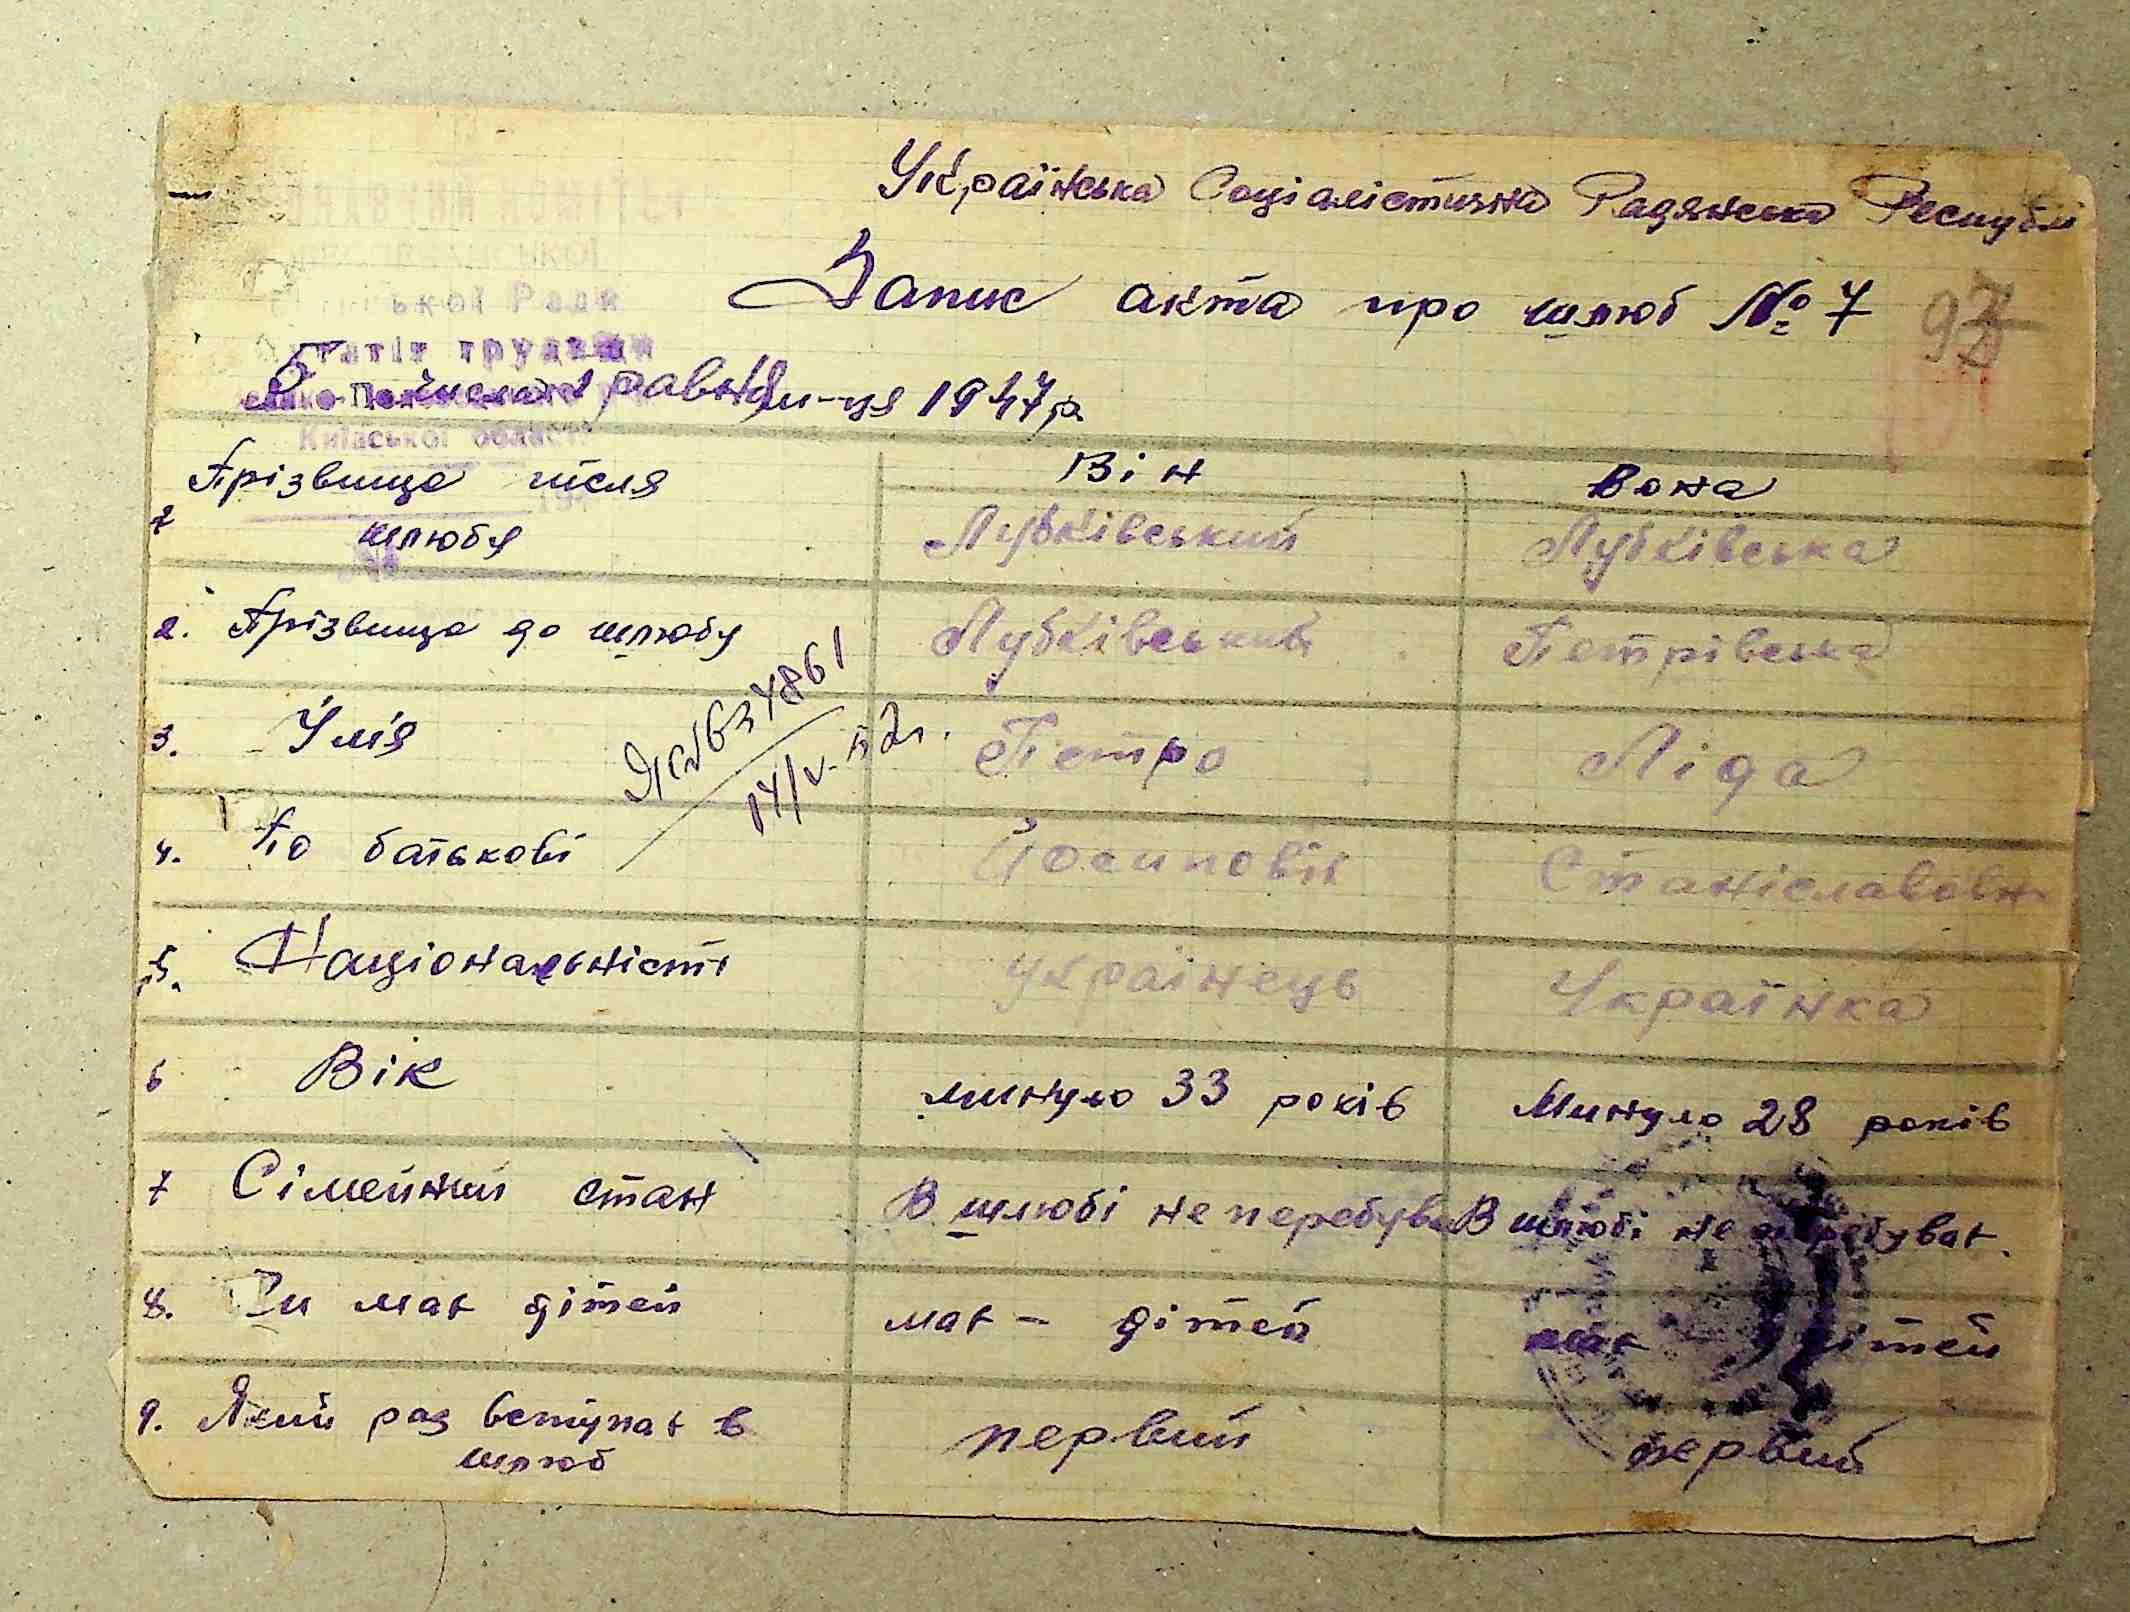 Українська Соціалістична Радянська Республі
Запис акта про шлюб № 7
97
КОМІТЕТ
ської Ради
трудящих
Київської області
5 числа травня м-ця 1947 р
Він Вона
1 Прізвище після шлюбу Лубківський Лубківська
2. Прізвище до шлюбу Лубківський Петрівська
3. Ім'я Петро Ліда
4. По батькові Йосиповіч Станіславовн
5. Національність Українець Українка
6 Вік минуло 33 років Минуло 28 років
7 Сімейний стан В шлюбі не перебував В шлюбі не перебуває
8. Чи має дітей має – дітей має – дітей
9. Який раз вступає в шлюб первий первий